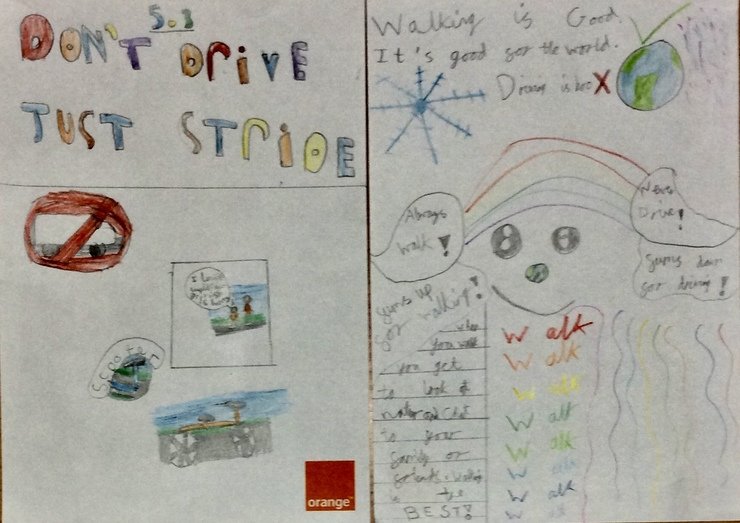 5.3
DON'T DRIVE
JUST STRIDE
I love
Scooter
orange
Walking is Good
It's good for the world.
Driving is X
Always
walk!
Never
Drive!
Gums up
for walking!
Gums down
for driving!
when
you walk
you get
to look at
nature and chat
to your
family or
friends. Walking
is the
BEST!
Walk
Walk
Walk
Walk
Walk
Walk
Walk
Walk